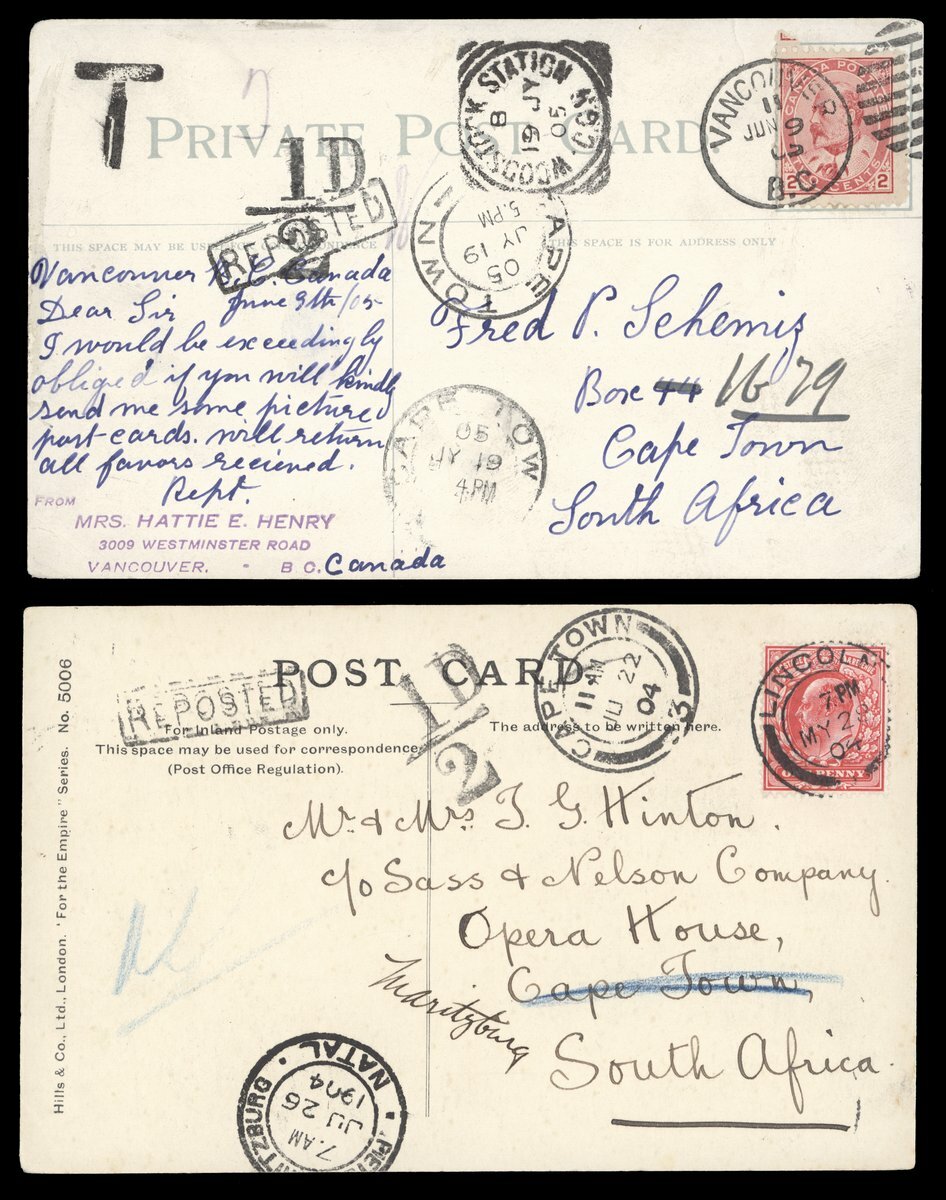 T
PRIVATE POST CARD
WOODSTOCK STATION C.G.H.
8
JY 19
05
VANCOUVER
11
JUN 9
05
B.C.
CANADA POSTAGE
2 TWO CENTS 2
1D
2
REPOSTED
CAPE TOWN
5. PM
JY 19
05
THIS SPACE MAY BE USED FOR CORRESPONDENCE
THIS SPACE IS FOR ADDRESS ONLY
Vancouver B.C. Canada
Dear Sir June 9th/05
I would be exceedingly
obliged if you will kindly
send me some picture
post-cards. will return
all favors recieved.
Rept.
FROM
MRS. HATTIE E. HENRY
3009 WESTMINSTER ROAD
VANCOUVER. B C. Canada
Fred P. Schemiz
Box 44 1679
Cape Town
South Africa
CAPE TOWN
05
JY 19
4.PM
POST CARD.
REPOSTED
1D
2
CAPE TOWN
11 AM
JU 22
04
3
LINCOLN
7. PM
MY 2
04
ONE PENNY
For Inland Postage only.
This space may be used for correspondence
(Post Office Regulation).
The address to be written here.
Hills & Co., Ltd., London. 'For the Empire" Series. No. 5006
Mr. & Mrs. T. G. Hinton.
c/o Sass & Nelson Company.
Opera House,
Cape Town,
Maritzburg
South Africa.
NATAL
7. AM
JU 26
1904